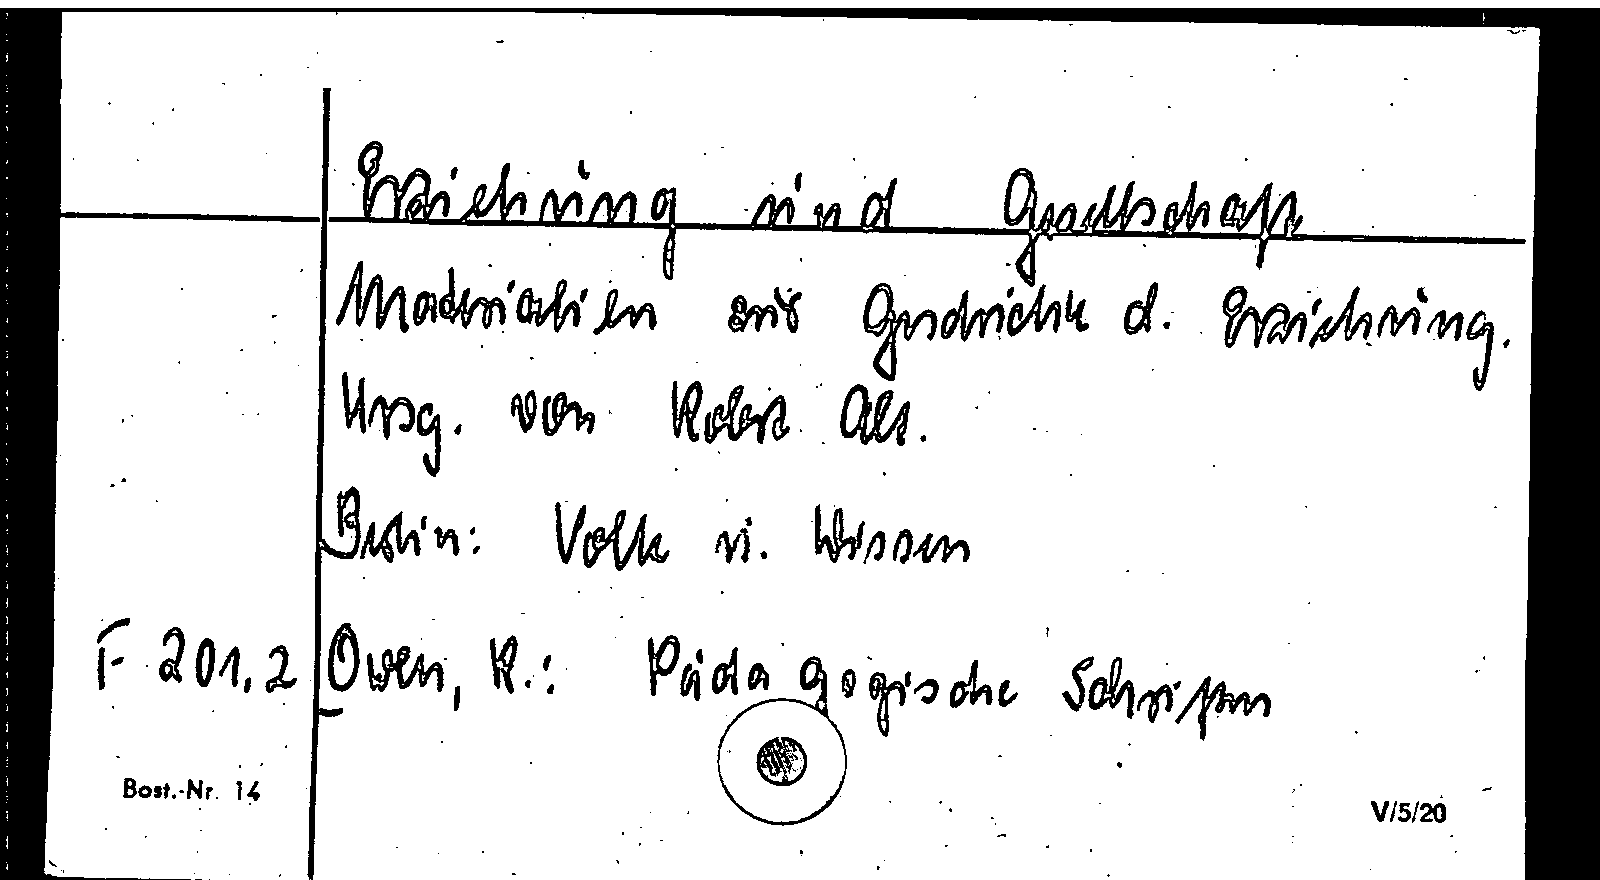 Erziehung und Gesellschaft
Materialien zur Geschichte d. Erziehung.
Hrsg. von Robert Alt.
Berlin: Volk u. Wissen
F 201,2 Owen, R.: Pädagogische Schriften
Best.-Nr. 14
V/5/20